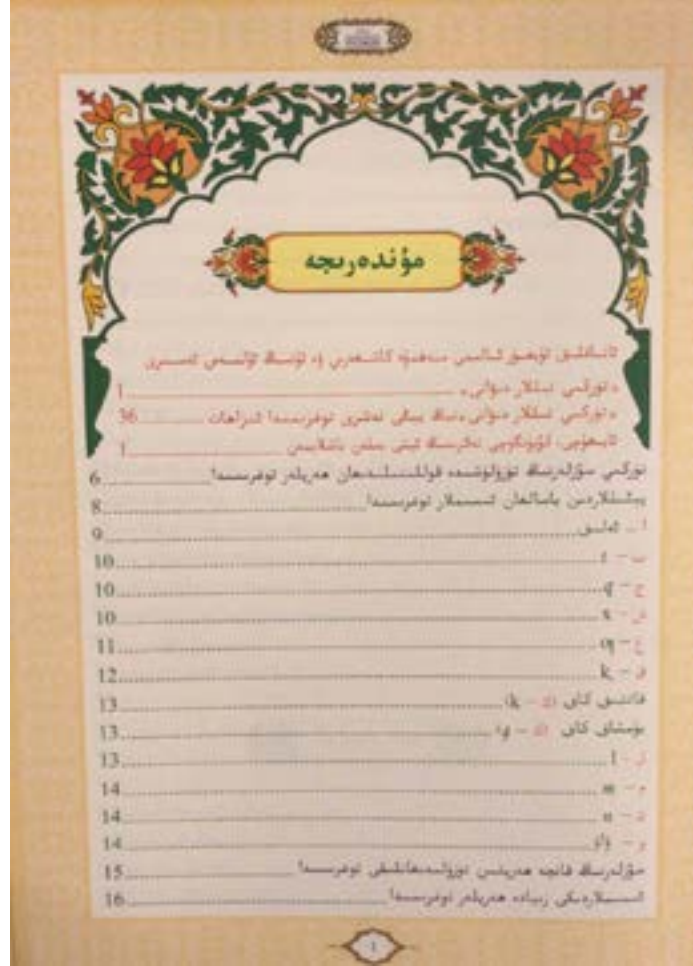 مۇندەرىجە
ئاتاقلىق ئۇيغۇر ئالىمى مەھمۇد كاشغەرىي ۋە ئۇنىڭ ئۆلمەس ئەسىرى
«تۈركىي تىللار دىۋانى» 1
«تۈركىي تىللار دىۋانى»نىڭ يېڭى نەشرى توغرىسىدا ئىزاھات 36
1
تۈركىي سۆزلەرنىڭ تۈزۈلۈشىدە قوللىنىلىدىغان ھەرپلەر توغرىسىدا 6
پېئىللاردىن ياسالغان ئىسىملار توغرىسىدا 8
ا – ئەلىق 9
ت – t 10
10
10
11
ق – k 12
قاتتىق كاق (ك – k) 13
يۇمشاق كاق (ك – g) 13
ل – l 13
م – m 14
ن – n 14
و – ۋاۋ 14
سۆزلەرنىڭ قانچە ھەرپتىن تۈزۈلىدىغانلىقى توغرىسىدا 15
ئىسىملاردىكى زىيادە ھەرپلەر توغرىسىدا 16
1